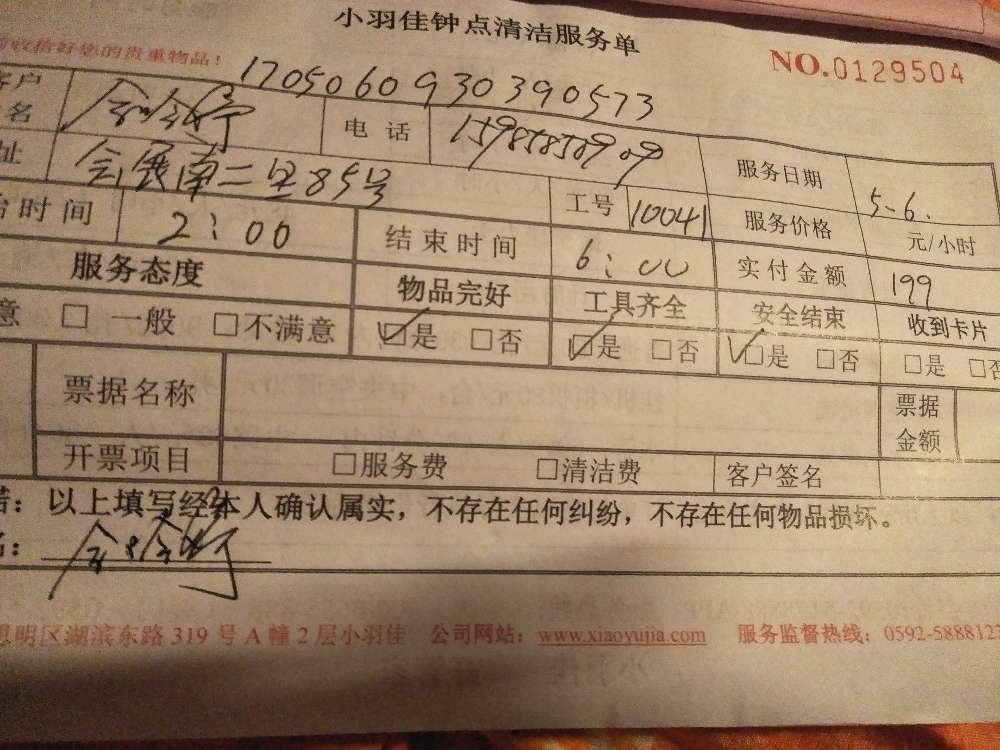 小羽佳钟点清洁服务单
收拾好您的贵重物品!
NO.0129504
170506093039 0573
客户
名
电话
服务日期 5-6.
址 会展南二里85号
工号 10041
服务价格 元/小时
时间 2:00
结束时间 6:00
实付金额 199
服务态度 物品完好 工具齐全 安全结束 收到卡片
意 □ 一般 □不满意 □是 □否 □是 □否 □是 □否 □是 □否
票据名称 票据金额
开票项目 □服务费 □清洁费 客户签名
诺: 以上填写经本人确认属实,不存在任何纠纷,不存在任何物品损坏。
思明区湖滨东路 319 号 A 幢 2 层小羽佳 公司网站: www.xiaoyujia.com 服务监督热线: 0592-5888123